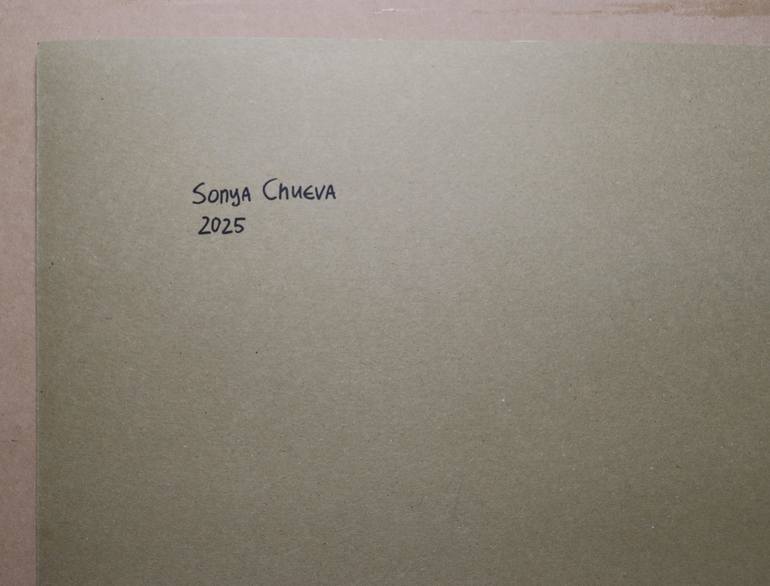 Sonya Chueva
2025